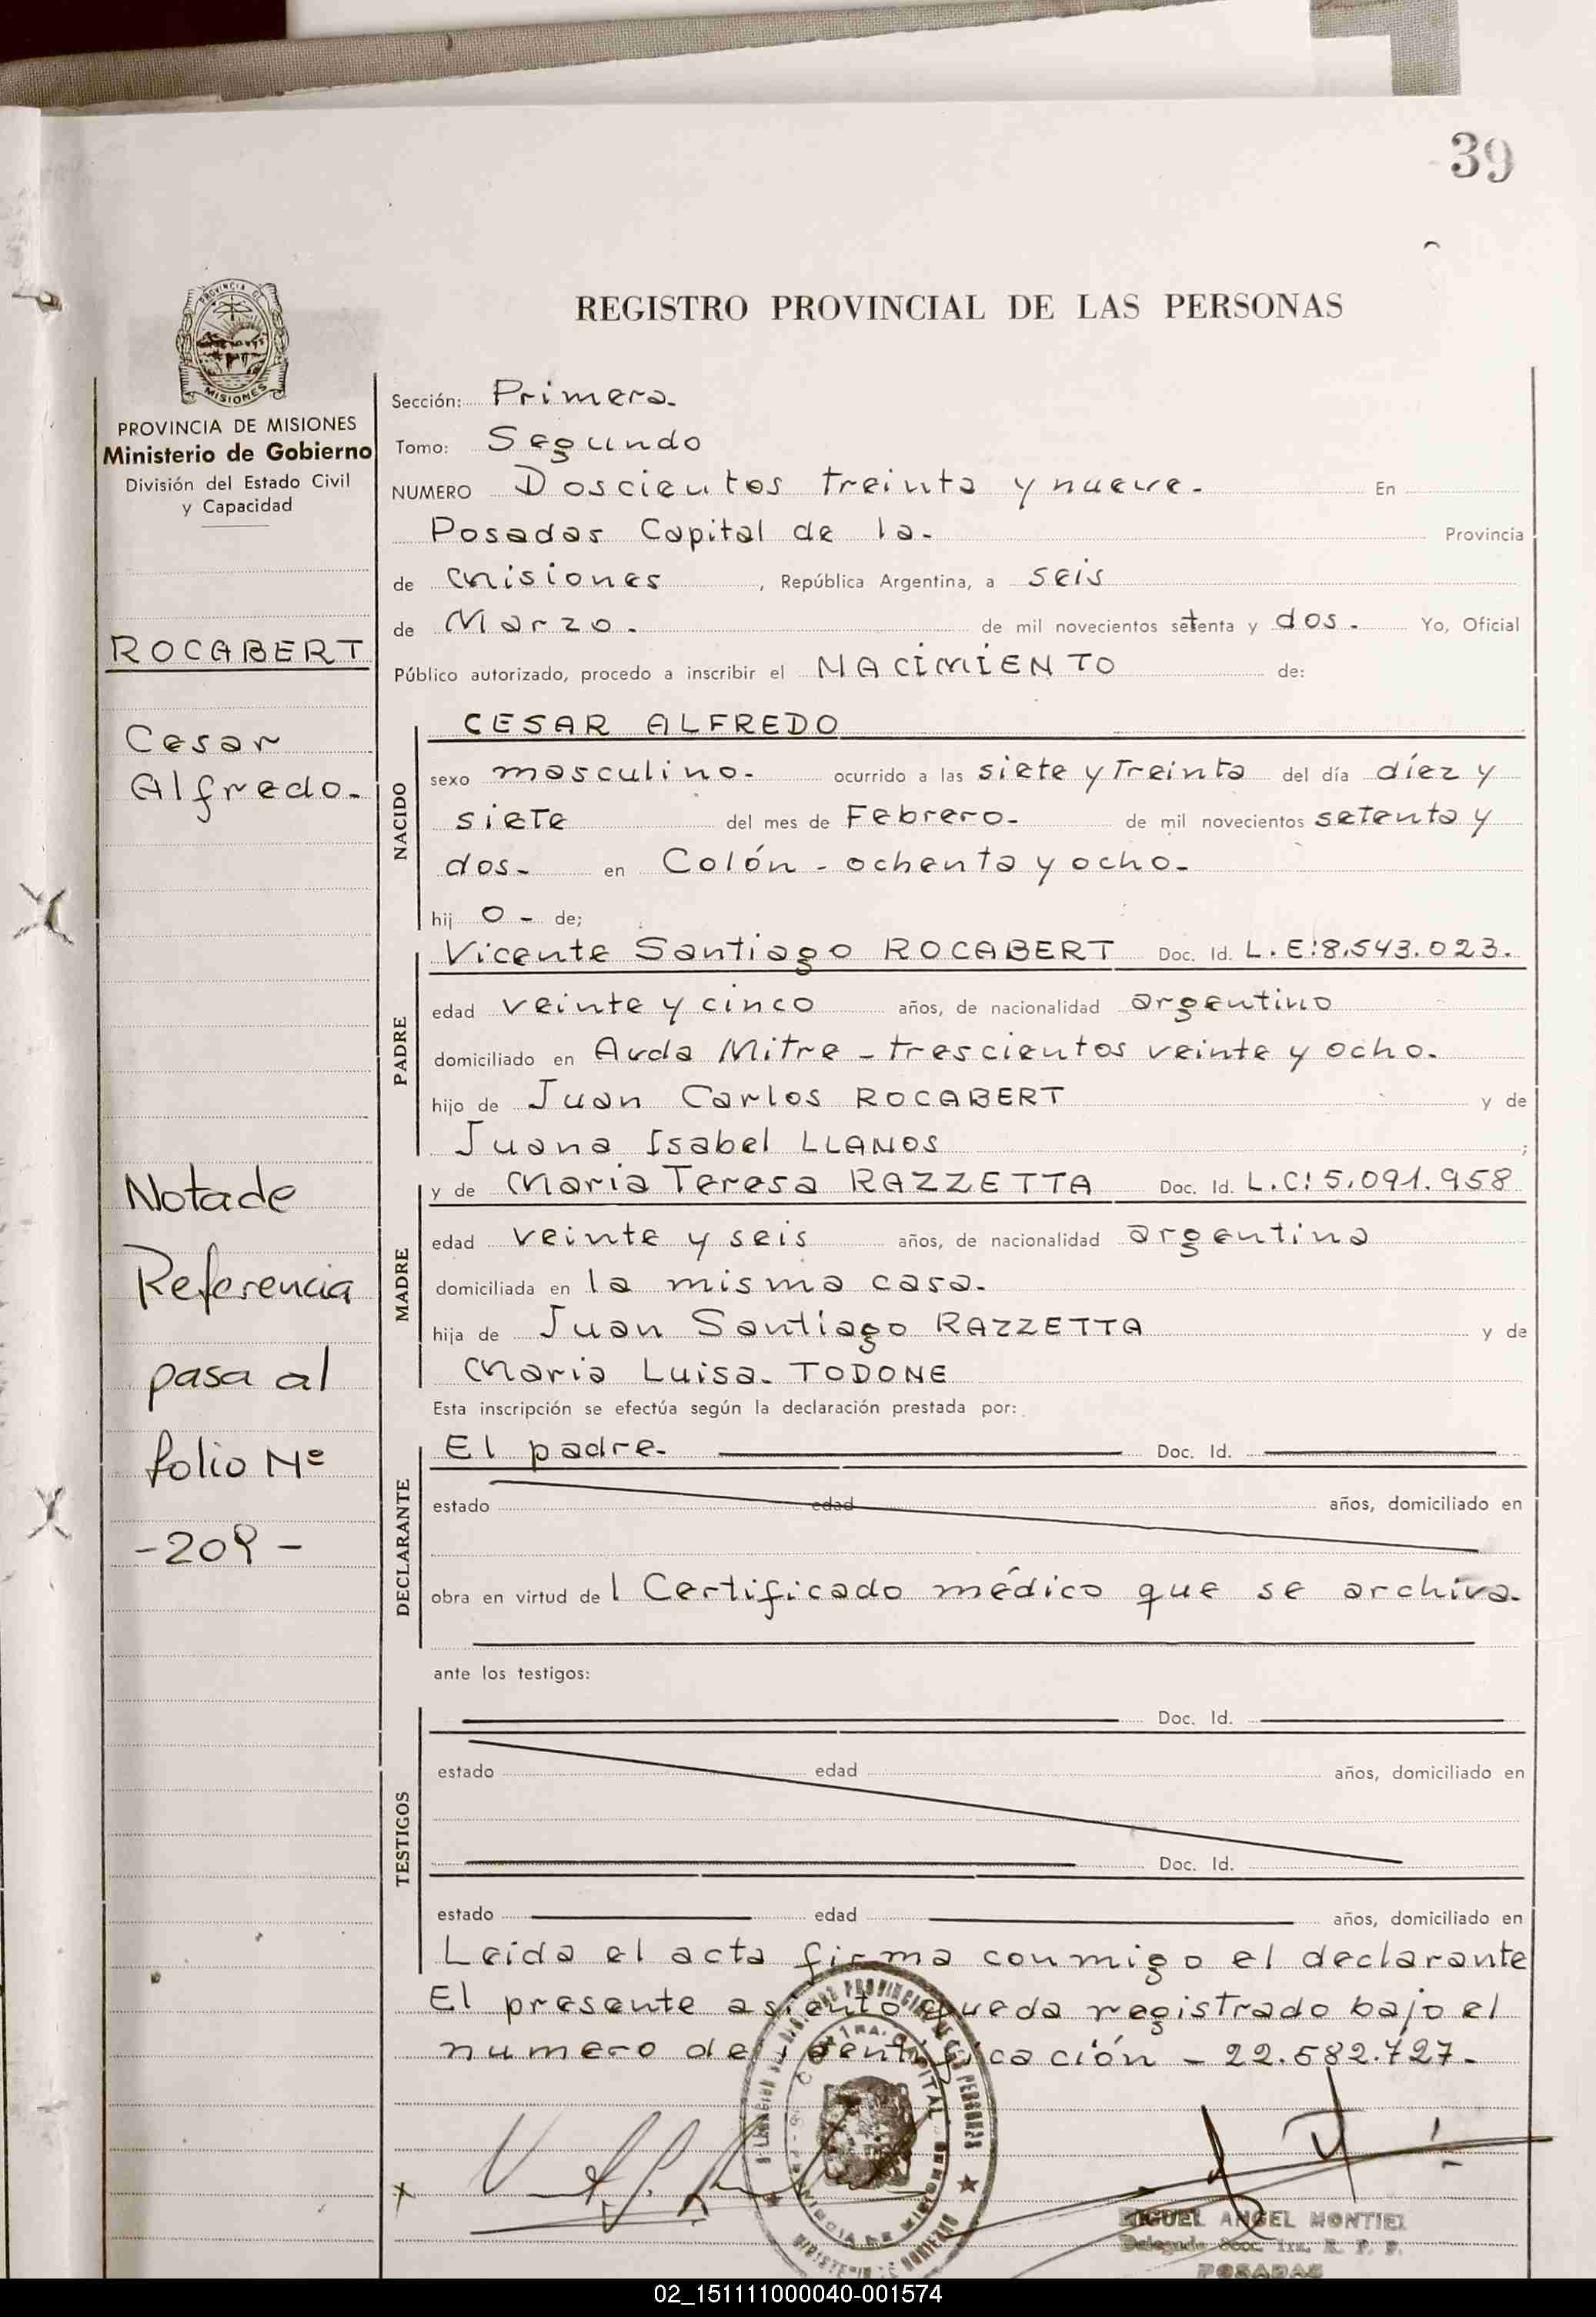 39
REGISTRO PROVINCIAL DE LAS PERSONAS
PROVINCIA DE MISIONES
PROVINCIA DE MISIONES
Ministerio de Gobierno
División del Estado Civil
y Capacidad
ROCABERT
Cesar
Alfredo.
Nota de
Referencia
pasa al
folio Nº
-209-
Sección: Primera.
Tomo: Segundo
NUMERO Doscientos treinta y nueve. En
Posadas Capital de la. Provincia
de Misiones, República Argentina, a seis
de Marzo. de mil novecientos setenta y dos. Yo, Oficial
Público autorizado, procedo a inscribir el NACIMIENTO de:
NACIDO
CESAR ALFREDO
sexo masculino. ocurrido a las siete y Treinta del día díez y
siete del mes de Febrero. de mil novecientos setenta y
dos. en Colón - ochenta y ocho.
hijo - de;
PADRE
Vicente Santiago ROCABERT Doc. Id. L.E:8.543.023.
edad veinte y cinco años, de nacionalidad argentino
domiciliado en Avda Mitre - trescientos veinte y ocho.
hijo de Juan Carlos ROCABERT y de
Juana Isabel LLANOS ;
MADRE
y de Maria Teresa RAZZETTA Doc. Id. L.C:5.091.958
edad veinte y seis años, de nacionalidad argentina
domiciliada en la misma casa.
hija de Juan Santiago RAZZETTA y de
Maria Luisa. TODONE
Esta inscripción se efectúa según la declaración prestada por:
DECLARANTE
El padre. Doc. Id.
estado edad años, domiciliado en
obra en virtud del Certificado médico que se archiva.
ante los testigos:
TESTIGOS
Doc. Id.
estado edad años, domiciliado en
Doc. Id.
estado edad años, domiciliado en
Leida el acta firma conmigo el declarante
El presente asiento queda registrado bajo el
numero de identificación - 22.582.727.
MIGUEL ANGEL MONTIEL
Delegado Secc. 1ra. R. P. P.
POSADAS
02_151111000040-001574